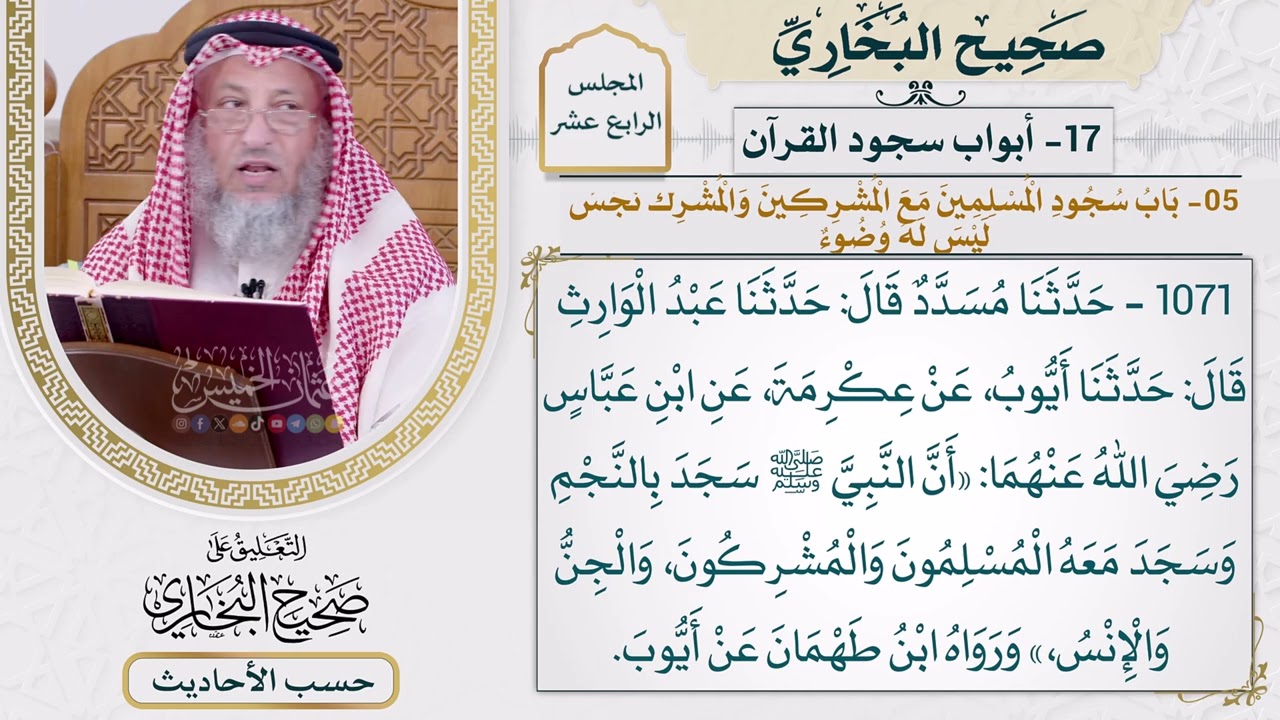 صَحِيح البُخَارِيِّ
المجلس
الرابع عشر
17- أبواب سجود القرآن
05- بَابُ سُجُودِ الْمُسْلِمِينَ مَعَ الْمُشْرِكِينَ وَالْمُشْرِك نجسٌ
لَيْسَ لَهُ وُضُوءٌ
1071 - حَدَّثَنَا مُسَدَّدٌ قَالَ: حَدَّثَنَا عَبْدُ الْوَارِثِ
قَالَ: حَدَّثَنَا أَيُّوبُ، عَنْ عِكْرِمَةَ، عَنِ ابْنِ عَبَّاسٍ
رَضِيَ اللهُ عَنْهُمَا: «أَنَّ النَّبِيَّ ﷺ سَجَدَ بِالنَّجْمِ
وَسَجَدَ مَعَهُ الْمُسْلِمُونَ وَالْمُشْرِكُونَ، وَالْجِنُّ
وَالْإِنْسُ،» وَرَوَاهُ ابْنُ طَهْمَانَ عَنْ أَيُّوبَ.
عثمان الخميس
التَّعْلِيقُ عَلَى
صَحِيحِ الْبُخَارِي
حسب الأحاديث